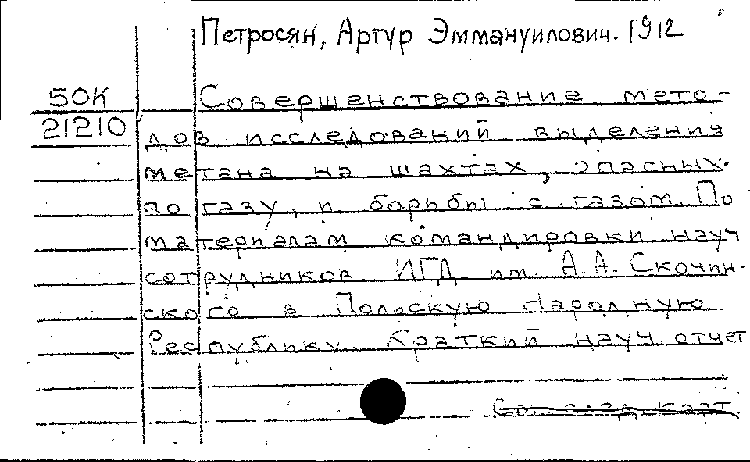 Петросян, Артур Эммануилович. 1912
50К Совершенствование мето-
21210 дов исследований выделения
метана на шахтах, опасных
по газу, и борьбы с газом. По
материалам командировки науч
сотрудников ИГД им. А.А. Скочин-
ского в Польскую Народную
Республику. Краткий науч. отчет
См. след. карт.